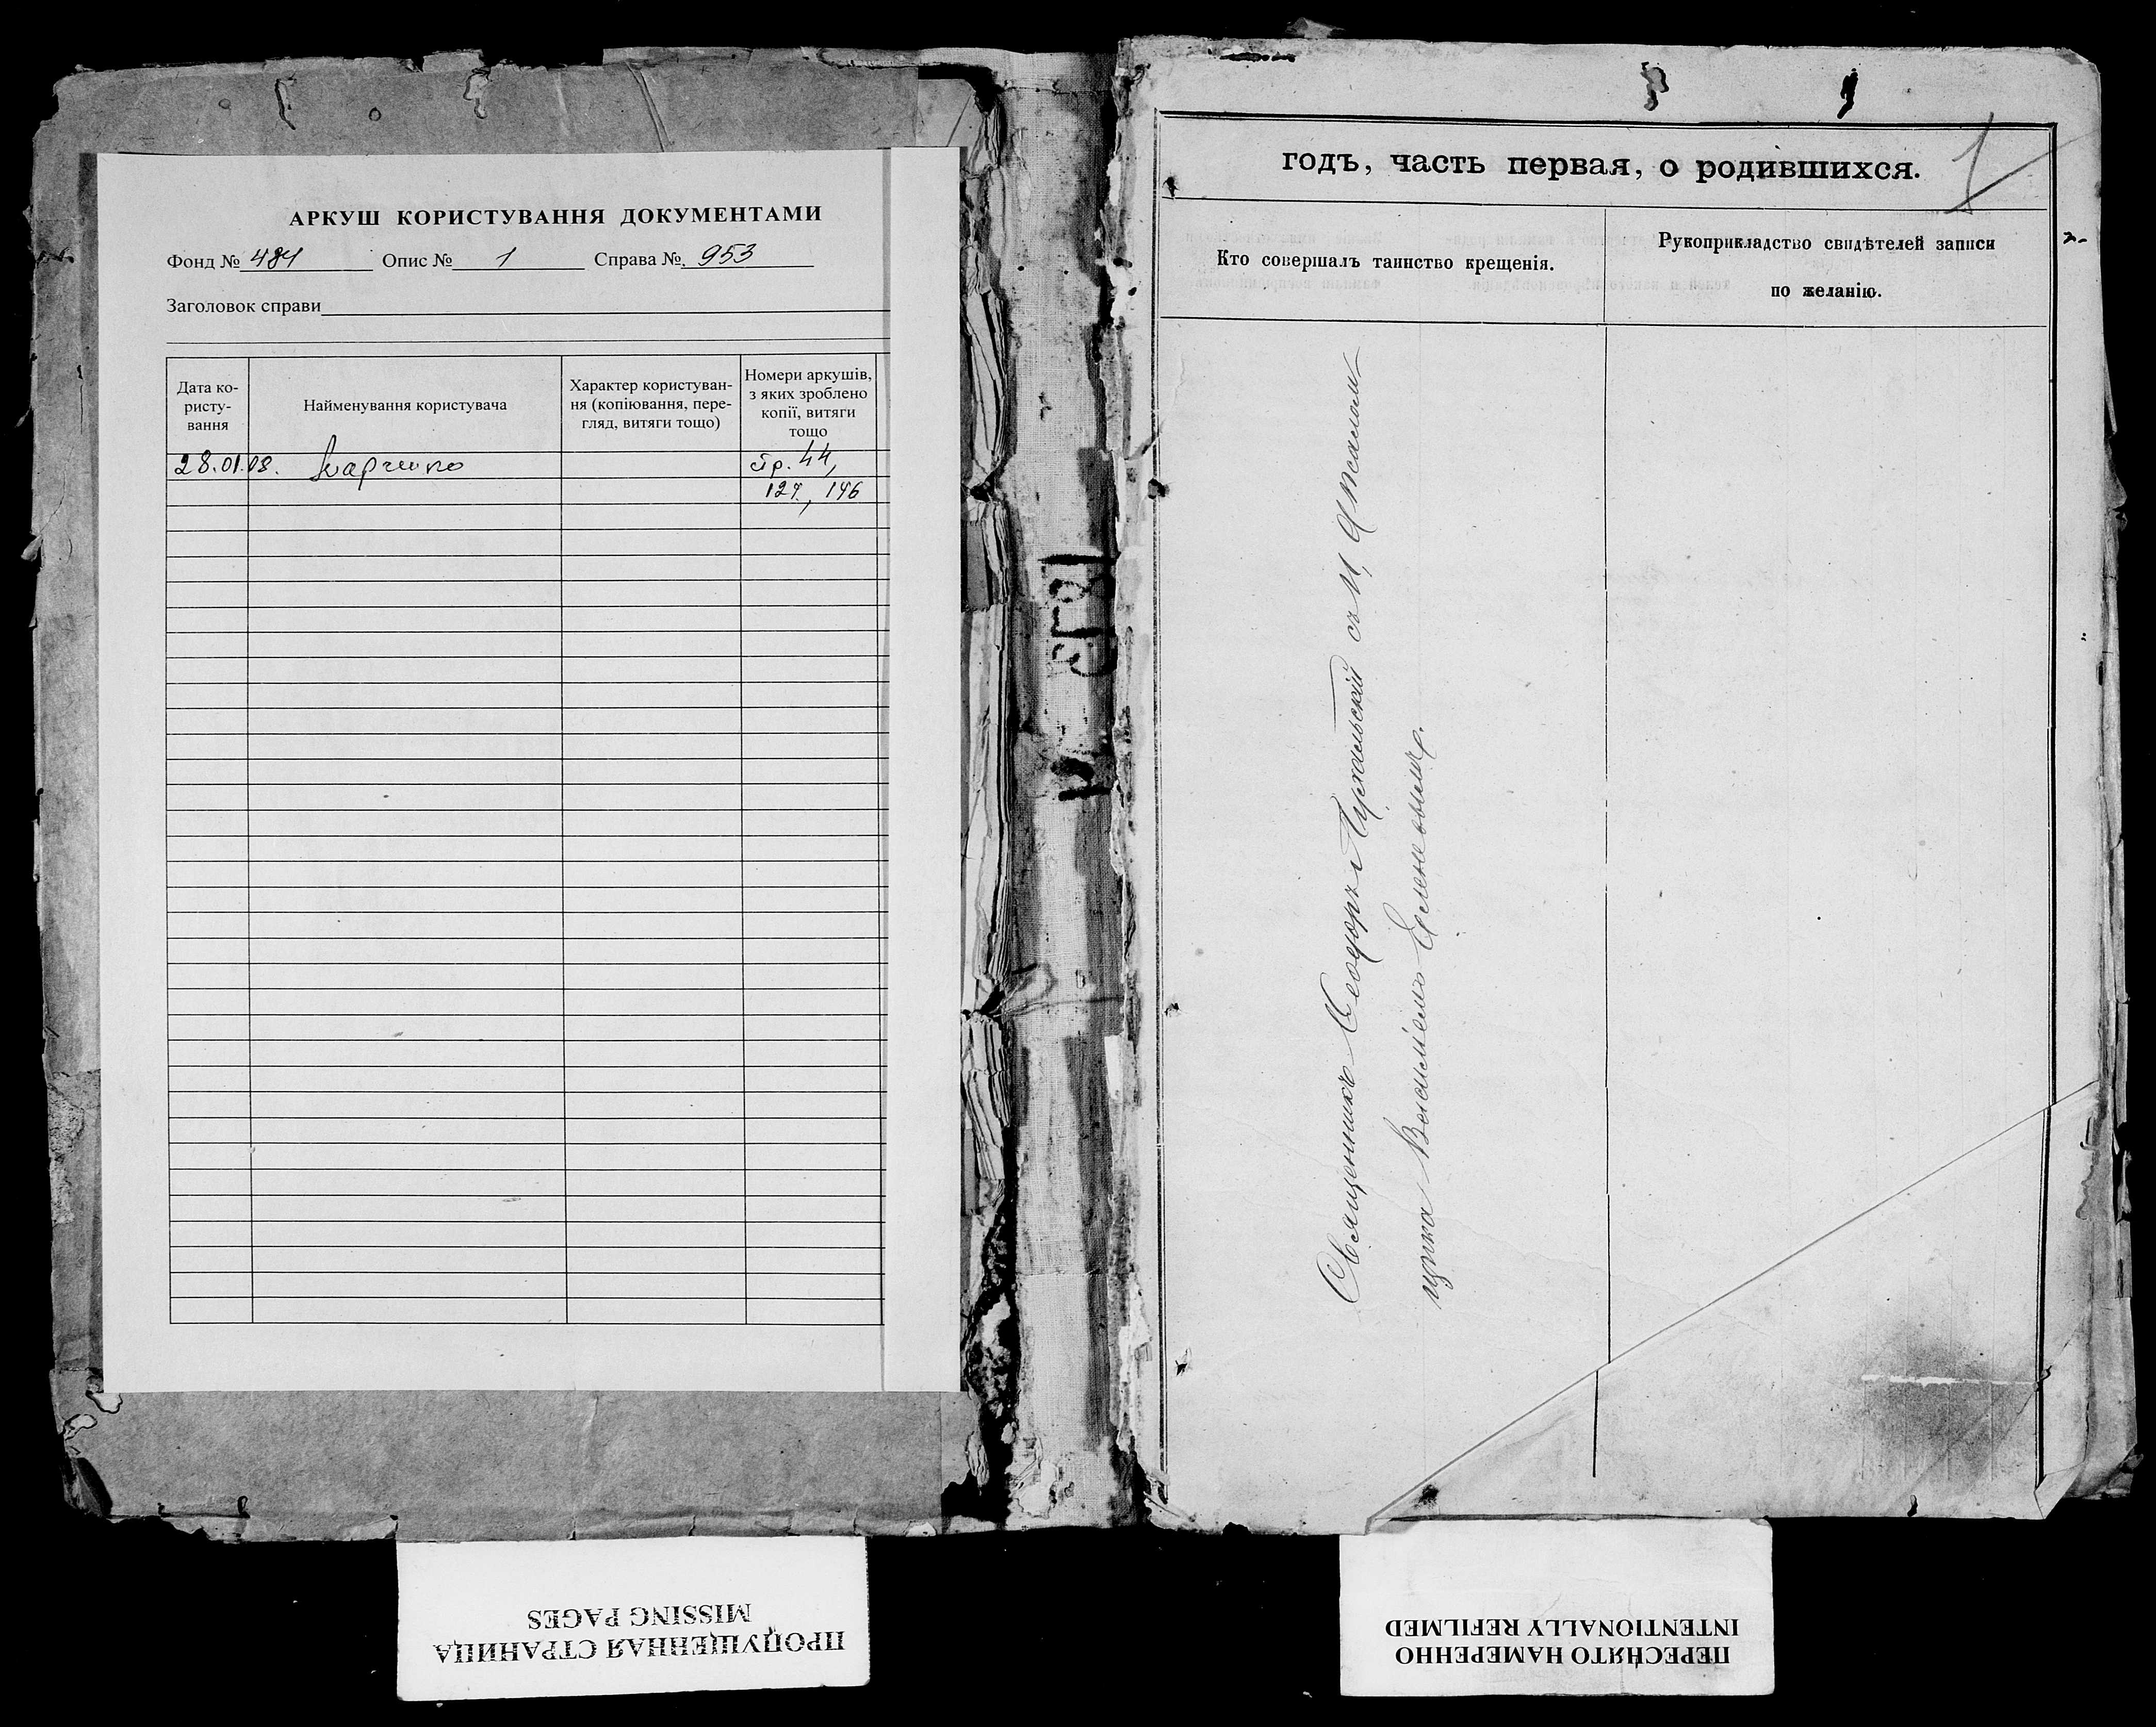 АРКУШ КОРИСТУВАННЯ ДОКУМЕНТАМИ
Фонд № 484 Опис № 1 Справа № 953
Заголовок справи
Дата ко-
ристу-
вання
Найменування користувача
Характер користуван-
ня (копіювання, пере-
гляд, витяги тощо)
Номери аркушів,
з яких зроблено
копії, витяги
тощо
28.01.08. стр. 44,
127, 146
годъ, часть первая, о родившихся. 1
Кто совершалъ таинство крещенія.
Рукоприкладство свидѣтелей записи
по желанію.
Священникъ Ѳеодоръ съ И,
ПРОПУЩЕННАЯ СТРАНИЦА
MISSING PAGES
ПЕРЕСНЯТО НАМЕРЕННО
INTENTIONALLY REFILMED